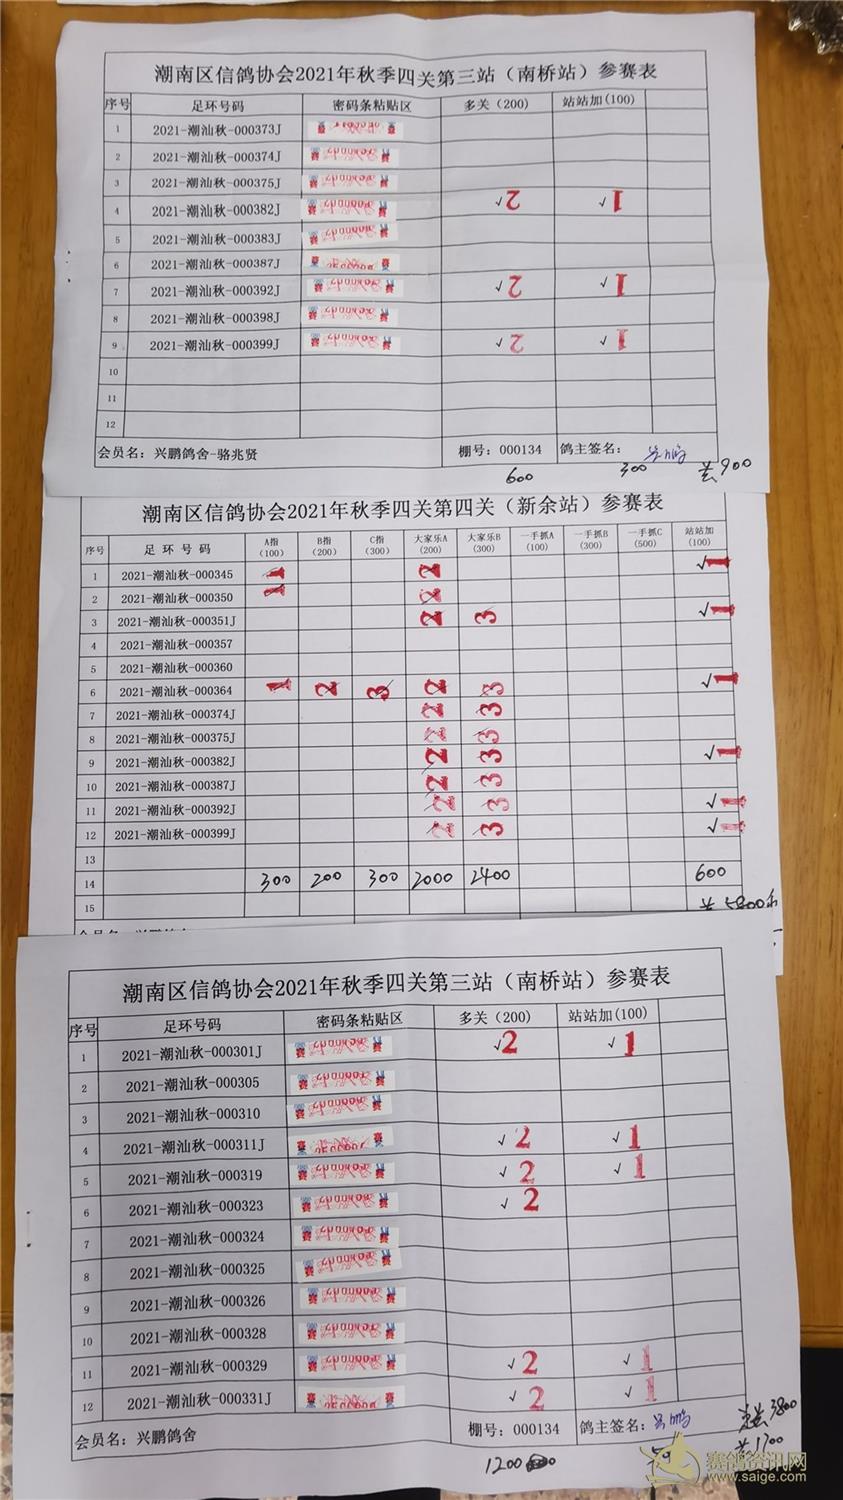 潮南区信鸽协会2021年秋季四关第三站（南桥站）参赛表
序号 足环号码 密码条粘贴区 多关（200） 站站加(100)
1 2021-潮汕秋-000373J
2 2021-潮汕秋-000374J
3 2021-潮汕秋-000375J
4 2021-潮汕秋-000382J √2 √1
5 2021-潮汕秋-000383J
6 2021-潮汕秋-000387J
7 2021-潮汕秋-000392J √2 √1
8 2021-潮汕秋-000398J
9 2021-潮汕秋-000399J √2 √1
10
11
12
会员名：兴鹏鸽舍-骆兆贤 棚号：000134 鸽主签名：
600 300 共900
潮南区信鸽协会2021年秋季四关第四关（新余站）参赛表
序号 足环号码 A指（100） B指（200） C指（300） 大家乐A（200） 大家乐B（300） 一手抓A（100） 一手抓B（300） 一手抓C（500） 站站加（100）
1 2021-潮汕秋-000345 1 2 √1
2 2021-潮汕秋-000350 1 2
3 2021-潮汕秋-000351J 2 3 √1
4 2021-潮汕秋-000357
5 2021-潮汕秋-000360
6 2021-潮汕秋-000364 1 2 3 2 3 √1
7 2021-潮汕秋-000374J 2 3
8 2021-潮汕秋-000375J 2 3
9 2021-潮汕秋-000382J 2 3 √1
10 2021-潮汕秋-000387J 2 3
11 2021-潮汕秋-000392J 2 3 √1
12 2021-潮汕秋-000399J 2 3 √1
13
14 300 200 300 2000 2400 600
15 共5800
潮南区信鸽协会2021年秋季四关第三站（南桥站）参赛表
序号 足环号码 密码条粘贴区 多关（200） 站站加(100)
1 2021-潮汕秋-000301J √2 √1
2 2021-潮汕秋-000305
3 2021-潮汕秋-000310
4 2021-潮汕秋-000311J √2 √1
5 2021-潮汕秋-000319 √2 √1
6 2021-潮汕秋-000323 √2
7 2021-潮汕秋-000324
8 2021-潮汕秋-000325
9 2021-潮汕秋-000326
10 2021-潮汕秋-000328
11 2021-潮汕秋-000329 √2 √1
12 2021-潮汕秋-000331J √2 √1
会员名：兴鹏鸽舍 棚号：000134 鸽主签名：
3800
1200 共1700
赛鸽资讯网
www.saige.com